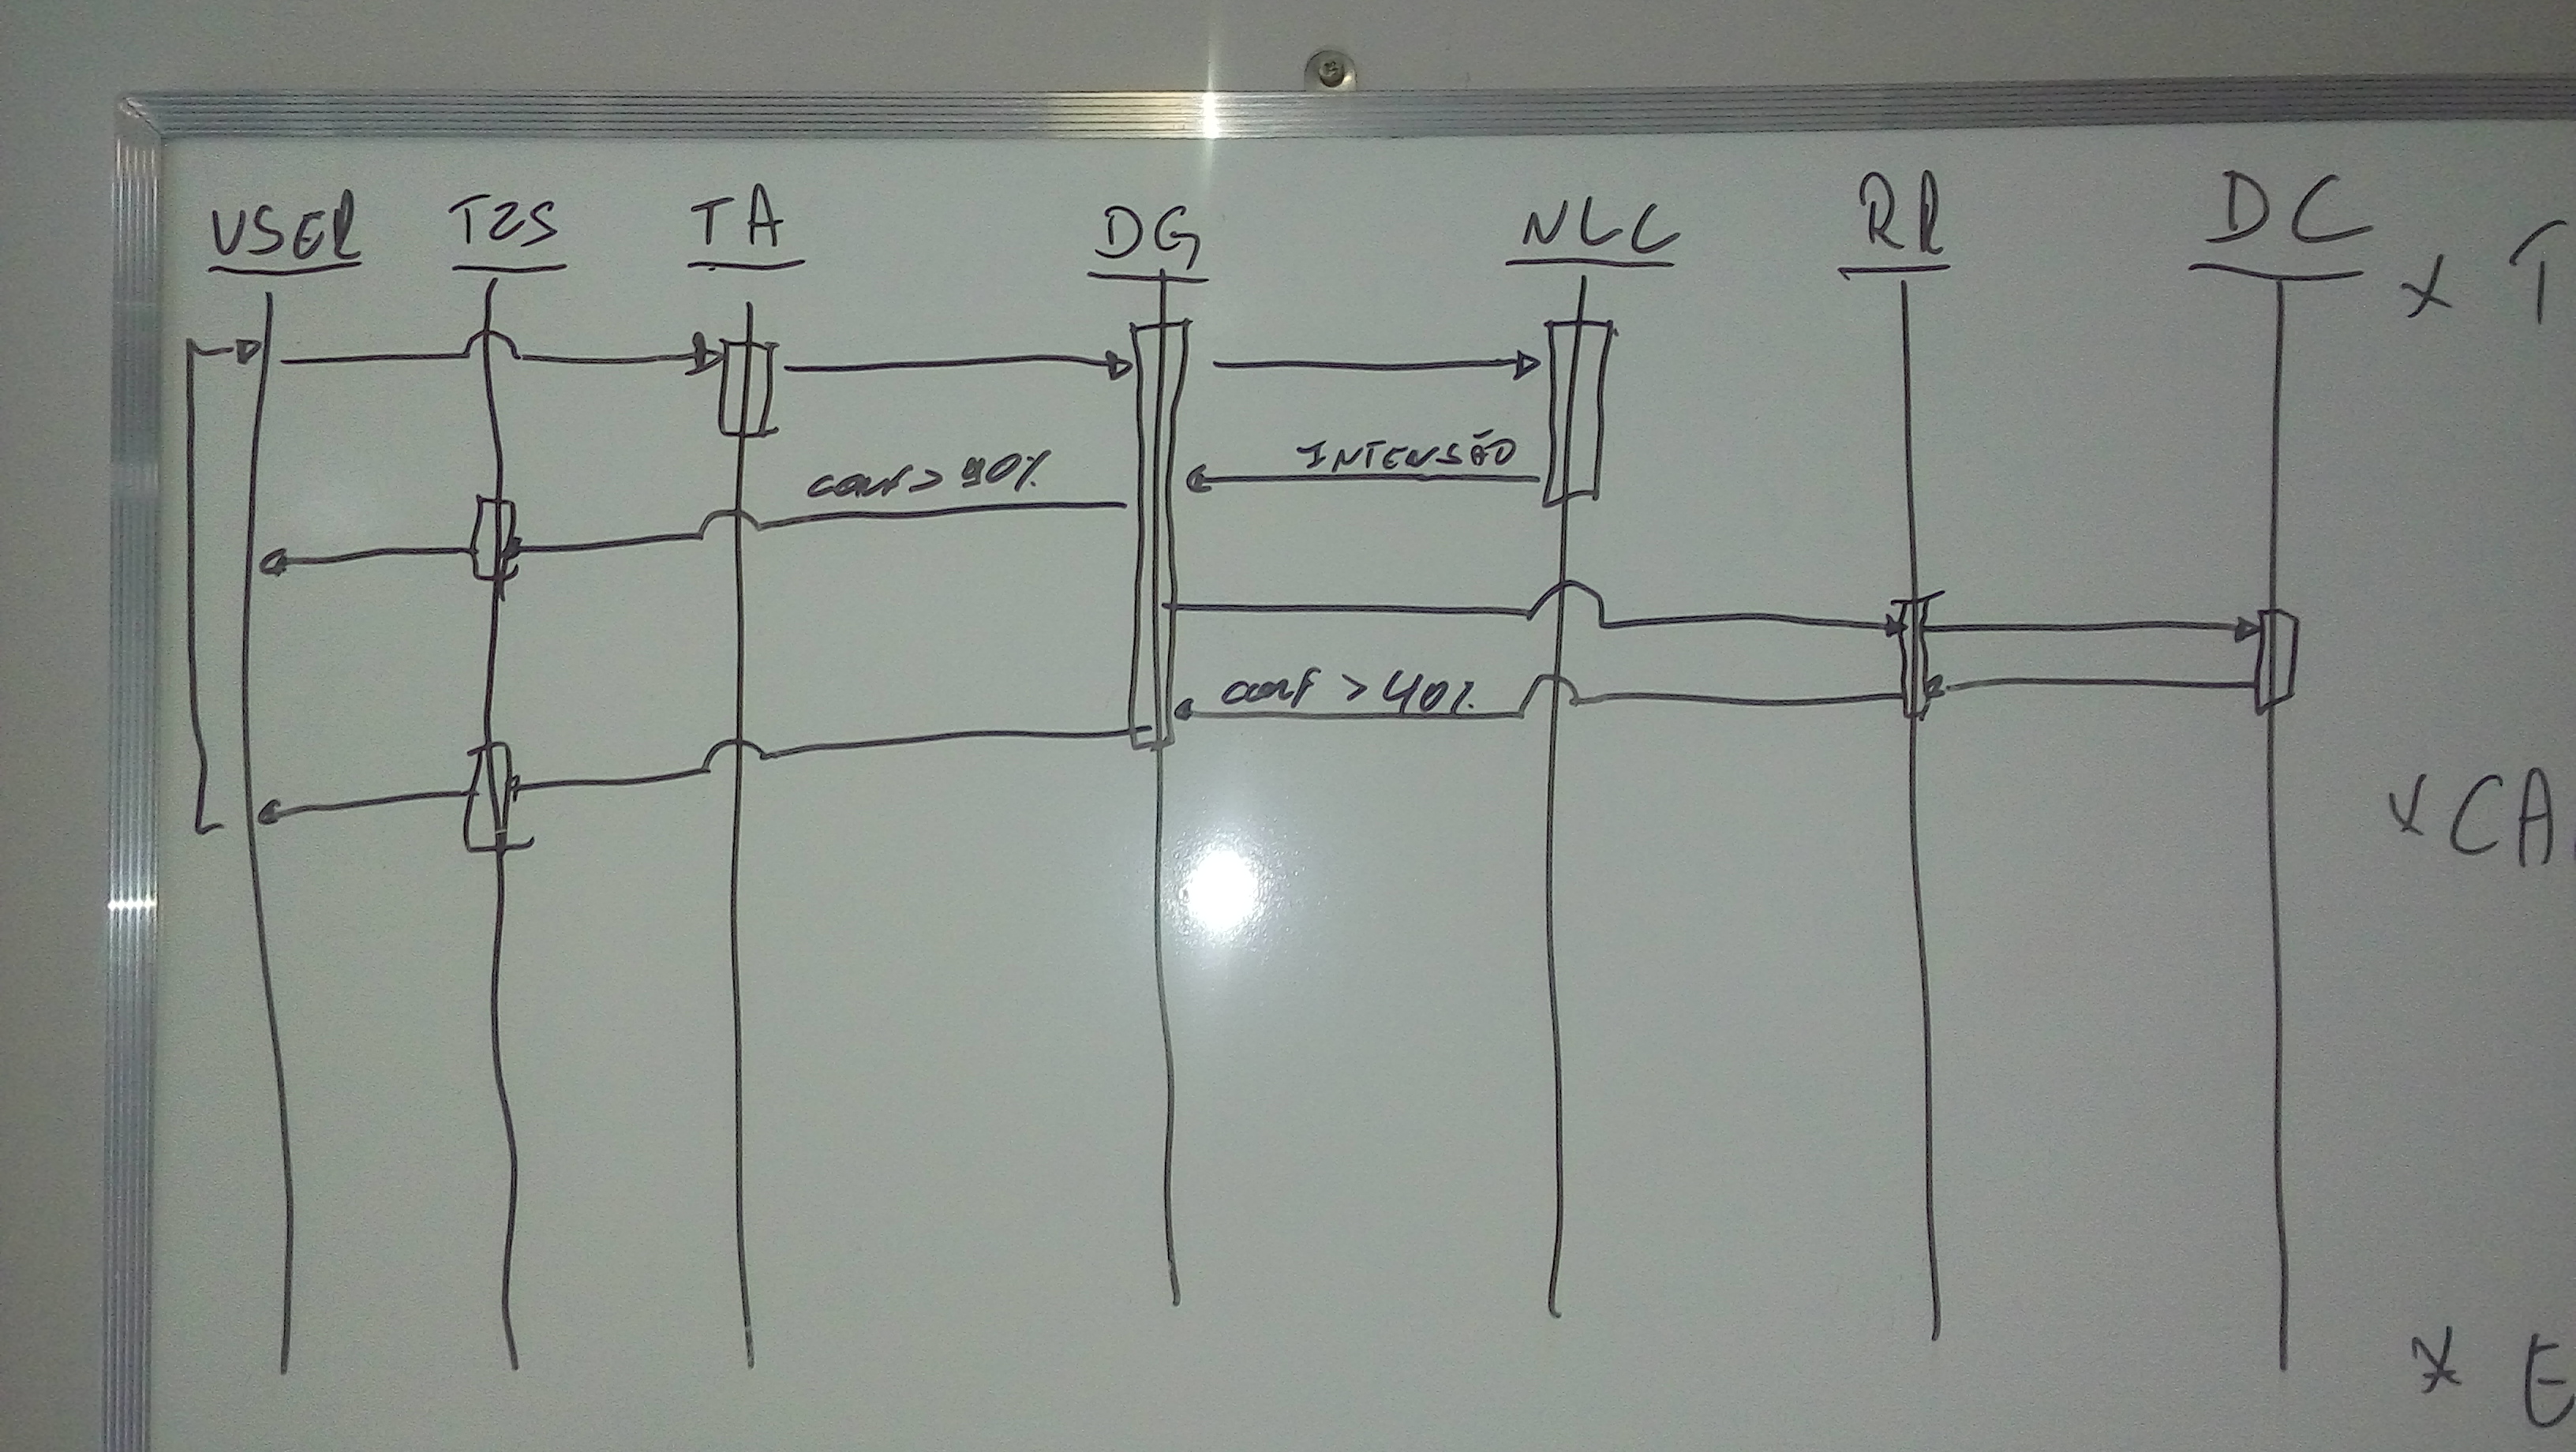 USER T2S TA DG NLC RR DC
x T
INTENSÃO
conf > 90%
conf > 40%
x CA
x E